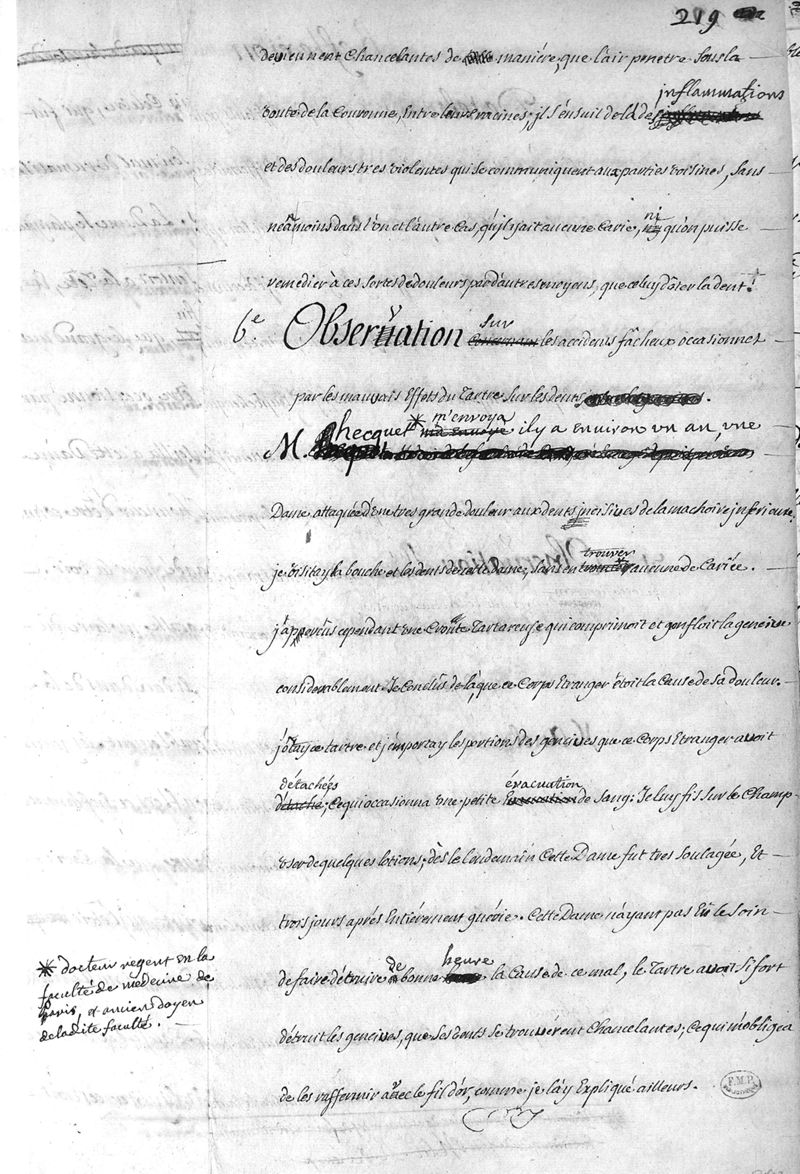 219
deviennent Chancelantes de maniére, que l'air penetre sous la
voute de la Couronne, Entre leurs racines; il s'ensuit de là des inflammations
et des douleurs tres violentes qui se communiquent aux parties voisines, sans
neãmoins dans l'un et l'autre Cas, qu'il y ait aucune Carie, ni qu'on puisse
remedier à ces sortes de douleurs par d'autres moyens, que celuy d'ôter la dent.
6.e Observation sur les accidents fâcheux occasionnet
par les mauvais Effets du Tartre sur les dents.
M. hecquet * m'envoya il y a environ un an, une
Dame attaquée d'une tres grande douleur aux dents incisives de la machoire inferieure.
je visitay la bouche et les dents de cette dame, sans en trouver aucune de Cariée.
j'apperçus cependant une Croute Tartareuse qui comprimoit et gonfloit la gencive
considerablement. Je Conclus de là, que ce Corps Etranger étoit la Cause de sa douleur.
j'otay ce tartre et j'emportay les portions des gencives que ce Corps Etranger avoit
détachées; Ce qui occasionna une petite évacuation de sang: Je luy fis sur le Champ
user de quelques lotions; dès le lendemain Cette Dame fut tres soulagée, Et
trois jours aprés Entiérement guérie. Cette Dame n'ayant pas Eü le soin
de faire détruire de bonne heure la Cause de ce mal, le Tartre avoit si fort
détruit les gencives, que ses dents se trouvérent Chancelantes; Ce qui m'obligea
de les raffermir avec le fil d'or, comme je l'ay Expliqué ailleurs.
* docteur regent en la
faculté de medecine de
paris, et ancien doyen
de ladite faculté.
F.M.P.